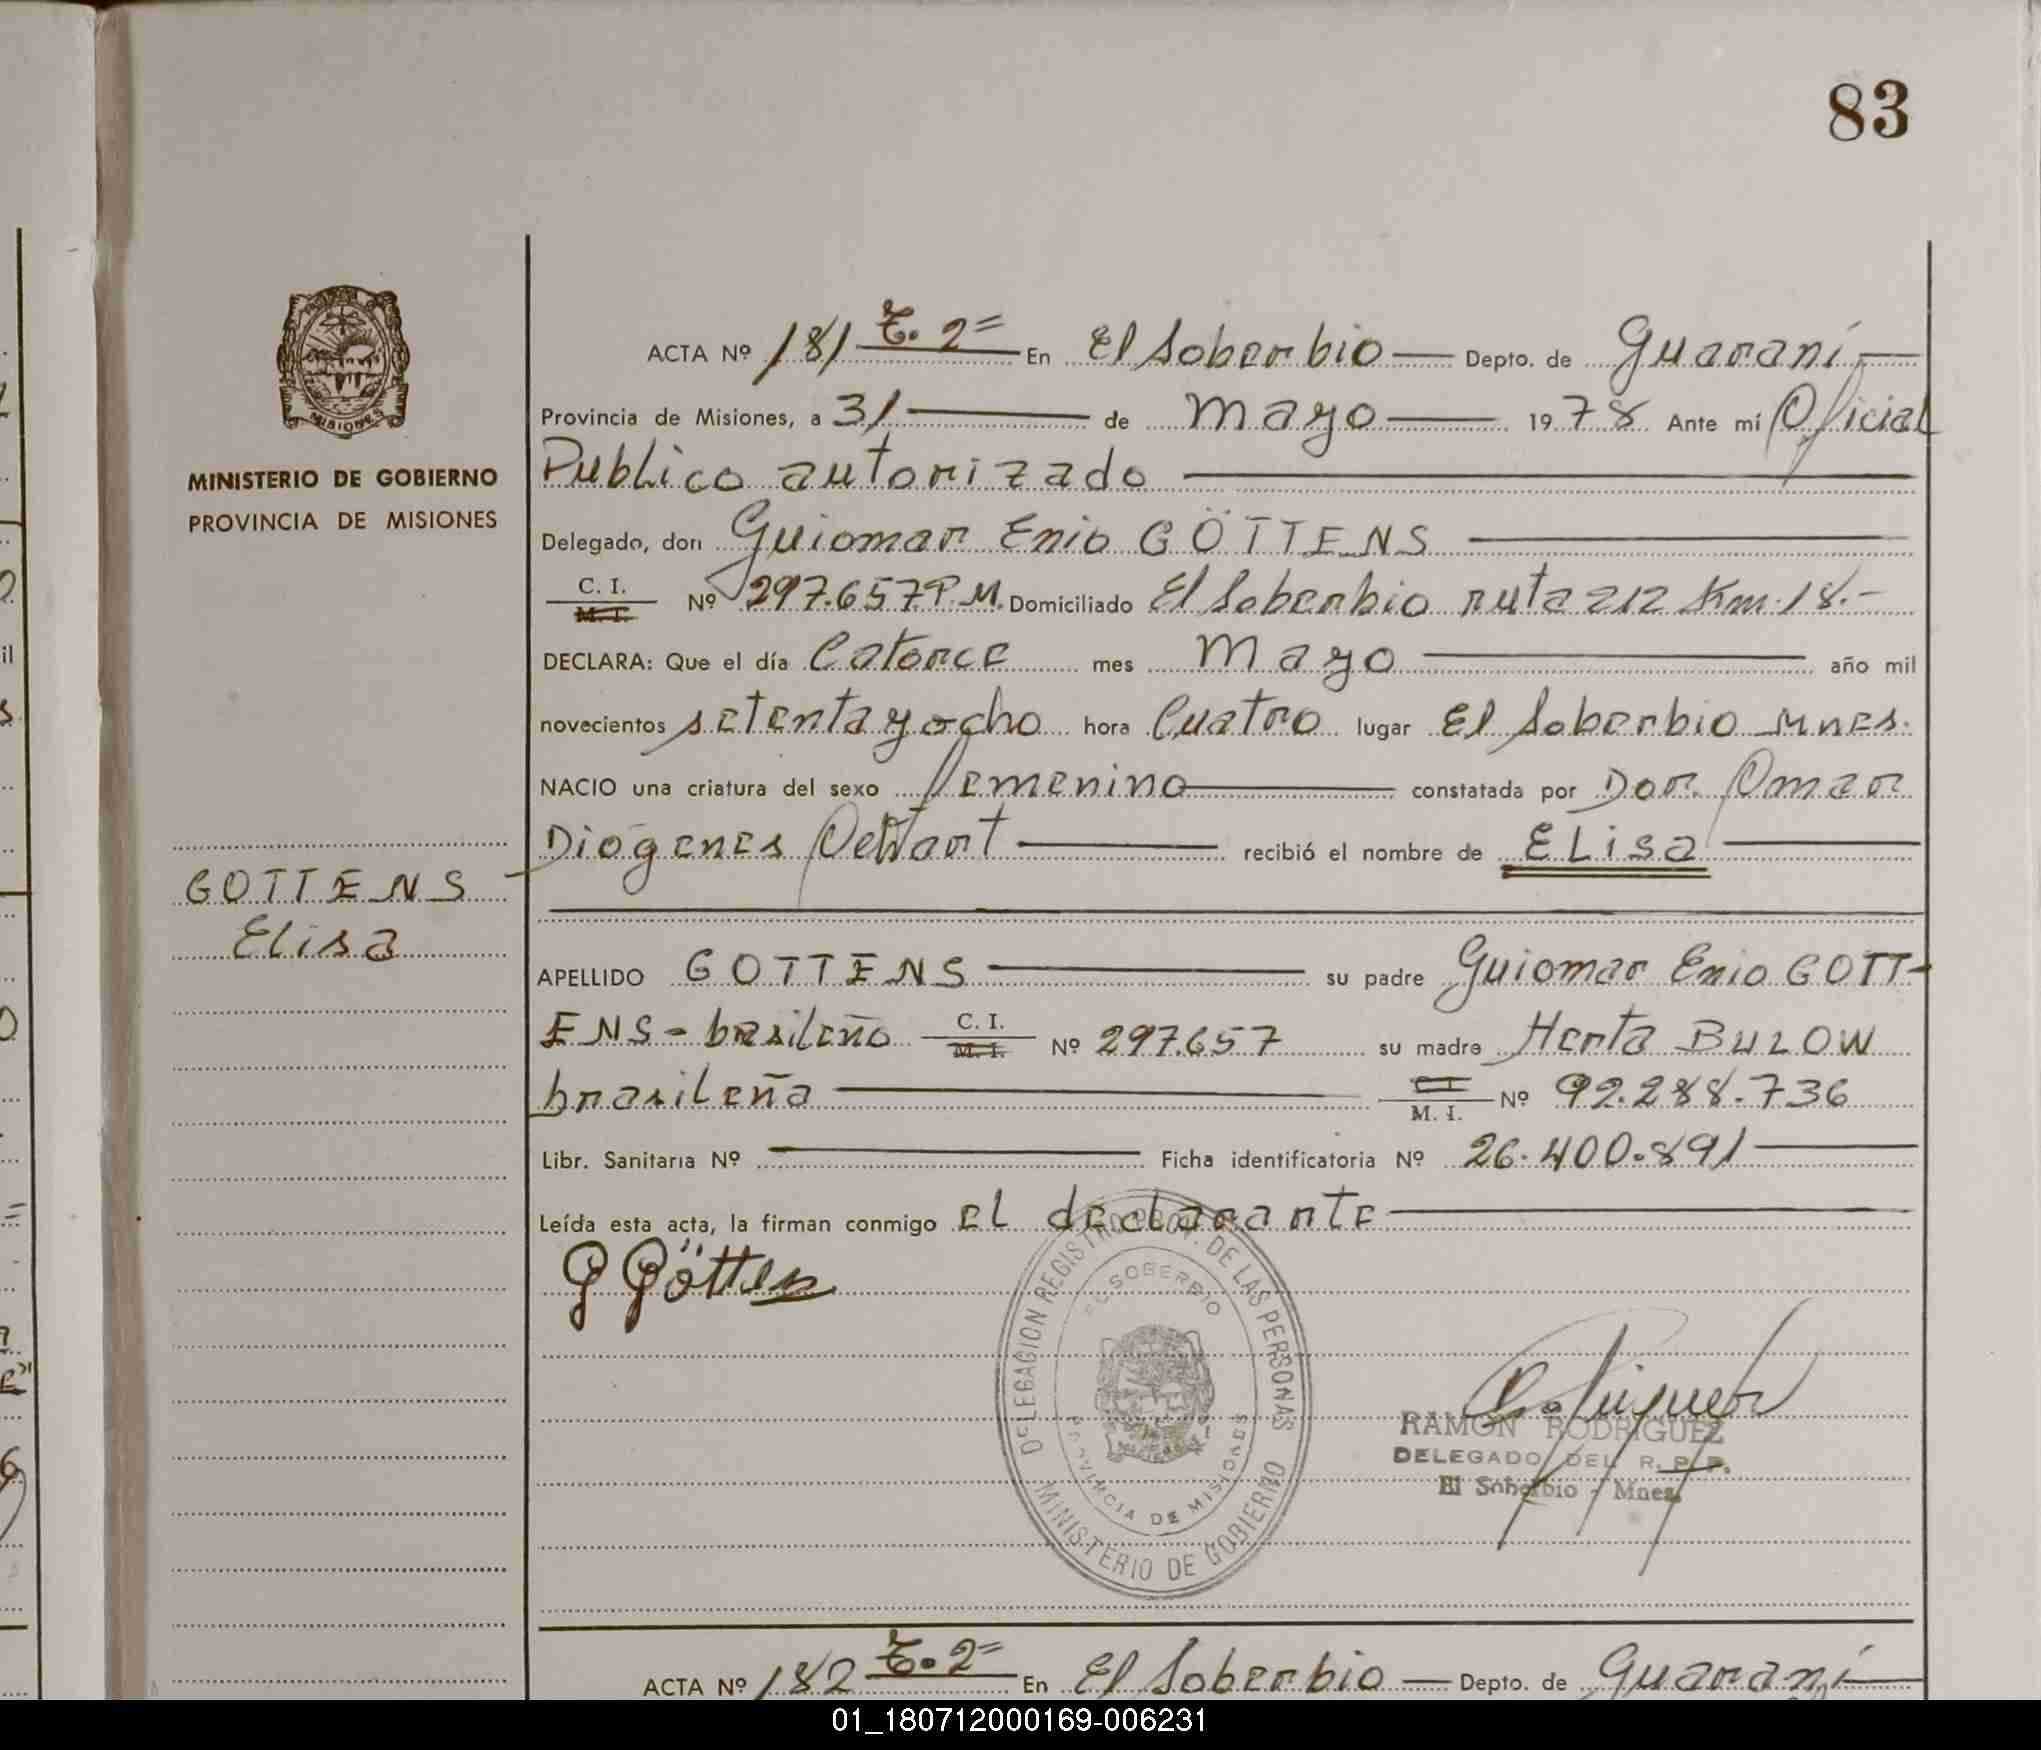 83
MISIONES
MINISTERIO DE GOBIERNO
PROVINCIA DE MISIONES
GOTTENS
Elisa
ACTA Nº 181 T. 2= En El Soberbio Depto. de Guaraní
Provincia de Misiones, a 31 de Mayo 1978 Ante mí Oficial
Publico autorizado
Delegado, don Guiomar Enio GÖTTENS
C. I.
M. I. Nº 297.657 P.M. Domiciliado El Soberbio ruta 212 Km. 18.-
DECLARA: Que el día Catorce mes Mayo año mil
novecientos setenta y ocho hora Cuatro lugar El Soberbio Mnes.
NACIO una criatura del sexo femenino constatada por Dor. Omar
Diógenes Dewart recibió el nombre de ELisa
APELLIDO GOTTENS su padre Guiomar Enio GOTT-
ENS - brasileño C. I. M. I. Nº 297.657 su madre Herta BULOW
brasileña C I M. I. Nº 92.288.736
Libr. Sanitaria Nº Ficha identificatoria Nº 26.400.891
Leída esta acta, la firman conmigo el declarante
G Göttens
DELEGACION REGISTRO PROV. DE LAS PERSONAS
EL SOBERBIO
PROVINCIA DE MISIONES
MINISTERIO DE GOBIERNO
RAMON RODRIGUEZ
DELEGADO DEL R. P. P.
El Soberbio - Mnes.
ACTA Nº 182 T. 2= En El Soberbio Depto. de Guaraní
01_180712000169-006231